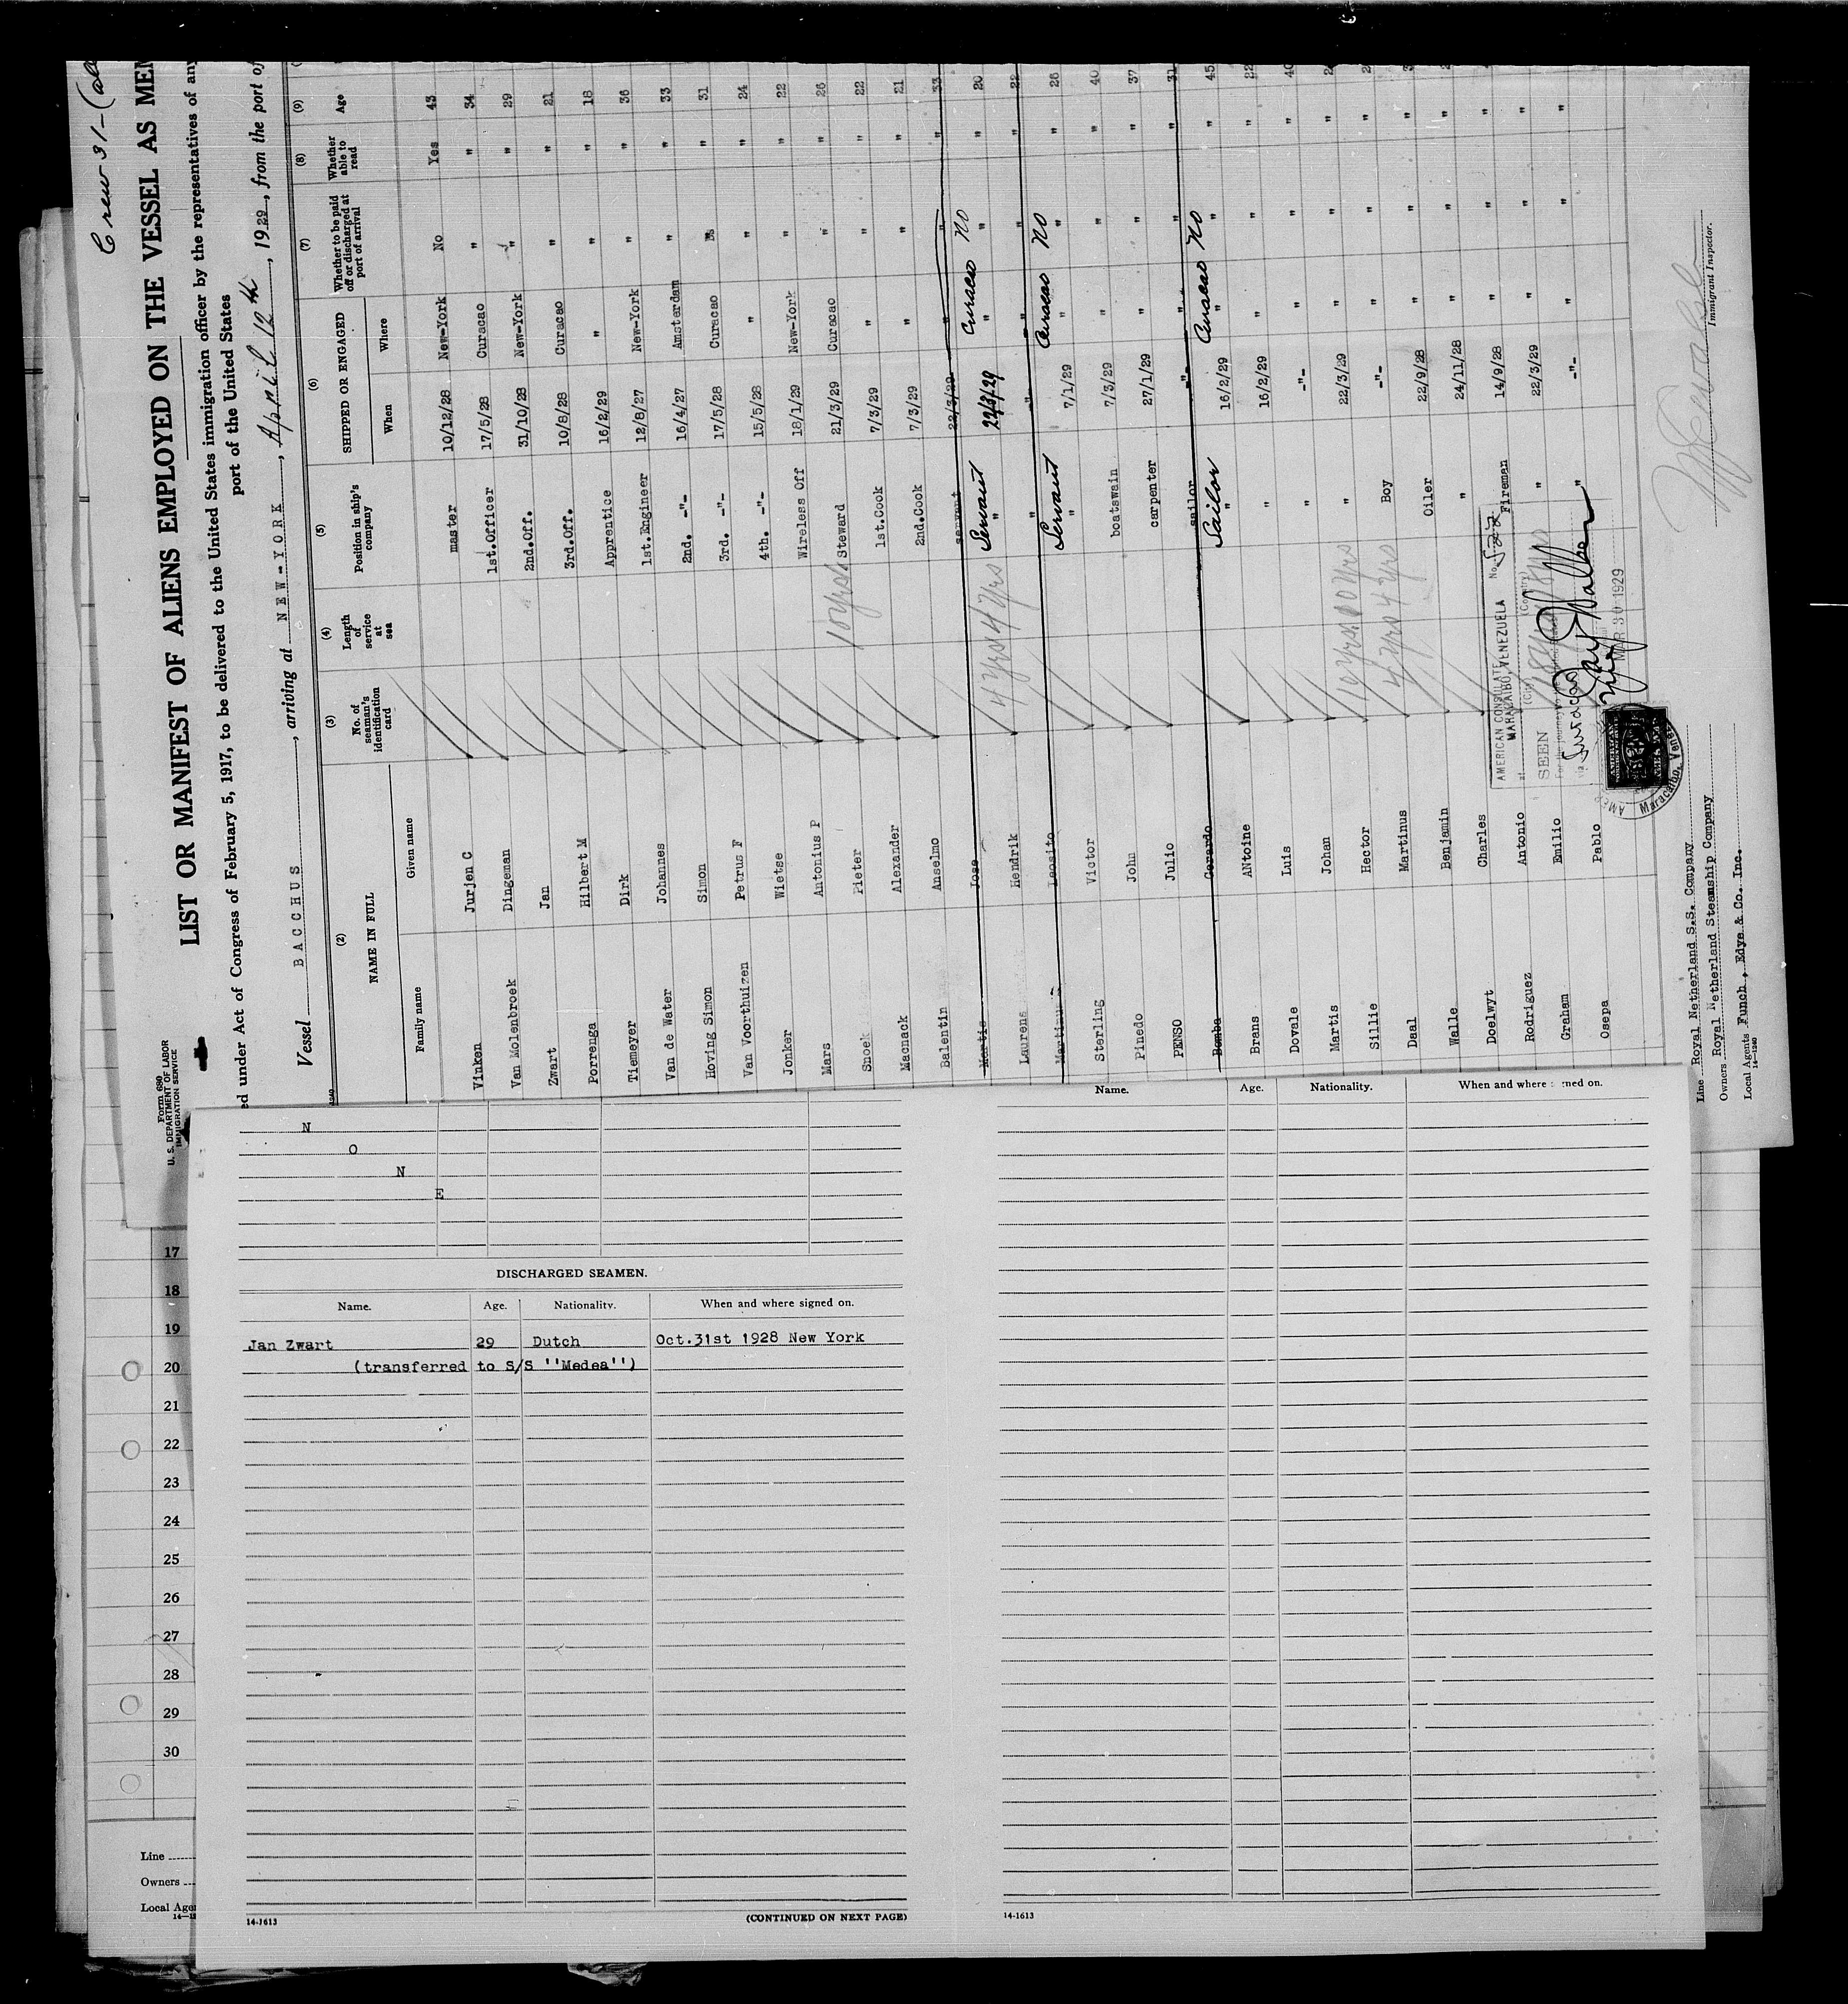 Crew 31-
Form 680
U. S. DEPARTMENT OF LABOR
IMMIGRATION SERVICE
LIST OR MANIFEST OF ALIENS EMPLOYED ON THE VESSEL AS MEM
ed under Act of Congress of February 5, 1917, to be delivered to the United States immigration officer by the representatives of any
port of the United States
Vessel BACCHUS, arriving at NEW-YORK, April 12th, 1929, from the port of
(2) (3) (4) (5) (6) (7) (8) (9)
NAME IN FULL No. of seaman's identification card Length of service at sea Position in ship's company SHIPPED OR ENGAGED Whether to be paid off or discharged at port of arrival Whether able to read Age
Family name Given name When Where
Vinken Jurjen C master 10/12/28 New-York No Yes 43
Van Molenbroek Dingeman 1st.Officer 17/5/28 Curacao " " 34
Zwart Jan 2nd.Off. 31/10/28 New-York " " 29
Porrenga Hilbert M 3rd.Off. 10/8/28 Curacao " " 21
Tiemeyer Dirk Apprentice 16/2/29 " " " 18
Van de Water Johannes 1st.Engineer 12/8/27 New-York " " 36
Hoving Simon Simon 2nd. -"- 16/4/27 Amsterdam " " 33
Van Voorthuizen Petrus F 3rd. -"- 17/5/28 Curacao " " 31
Jonker Wietse 4th. -"- 15/5/28 " " " 24
Mars Antonius P Wireless Off 18/1/29 New-York " " 22
Snoek Pieter 10 yrs Steward 21/3/29 Curacao " " 26
Macnack Alexander 1st.Cook 7/3/29 " " " 22
Balentin Anselmo 2nd.Cook 7/3/29 " " " 21
Martis Jose servant 22/3/29 " " " 33
Laurens Hendrik 4 yrs 4 yrs Servant " 22/3/29 Curacao No " " 20
Martinus Leosito " -"- " " " 22
Sterling Victor Servant " 7/1/29 Curacao No " " 26
Pinedo John boatswain 7/3/29 " " " 40
PENSO Julio carpenter 27/1/29 " " " 37
Bomba Gerardo sailor -"- " " " 31
Brans ANtoine Sailor " 16/2/29 Curacao No " " 45
Dovale Luis " 16/2/29 " " " 22
Martis Johan " -"- " " " 40
Sillie Hector 10 yrs 10 yrs " 22/3/29 " " "
Daal Martinus 4 yrs 4 yrs Boy -"- " " "
Walle Benjamin Oiler 22/9/28 " " "
Doelwyt Charles " 24/11/28 " " "
Rodriguez Antonio Fireman 14/9/28 " " "
Graham Emilio " 22/3/29 " " "
Osepa Pablo " -"- " " "
AMERICAN CONSULATE
MARACAIBO, VENEZUELA
No.
at (City) (Country)
SEEN
For the journey to the
Via Curacao
MAR 30 1929
Maracaibo, Venez
Line Royal Netherland S.S. Company
Owners Royal Netherland Steamship Company
Local Agents Funch, Edye & Co. Inc.
14-1240
Immigrant Inspector.
N
O
N
E
DISCHARGED SEAMEN.
Name. Age. Nationality. When and where signed on.
Jan Zwart 29 Dutch Oct.31st 1928 New York
(transferred to S/S ''Medea'')
14-1613
(CONTINUED ON NEXT PAGE)
Name. Age. Nationality. When and where signed on.
14-1613
17
18
19
20
21
22
23
24
25
26
27
28
29
30
Line
Owners
Local Age